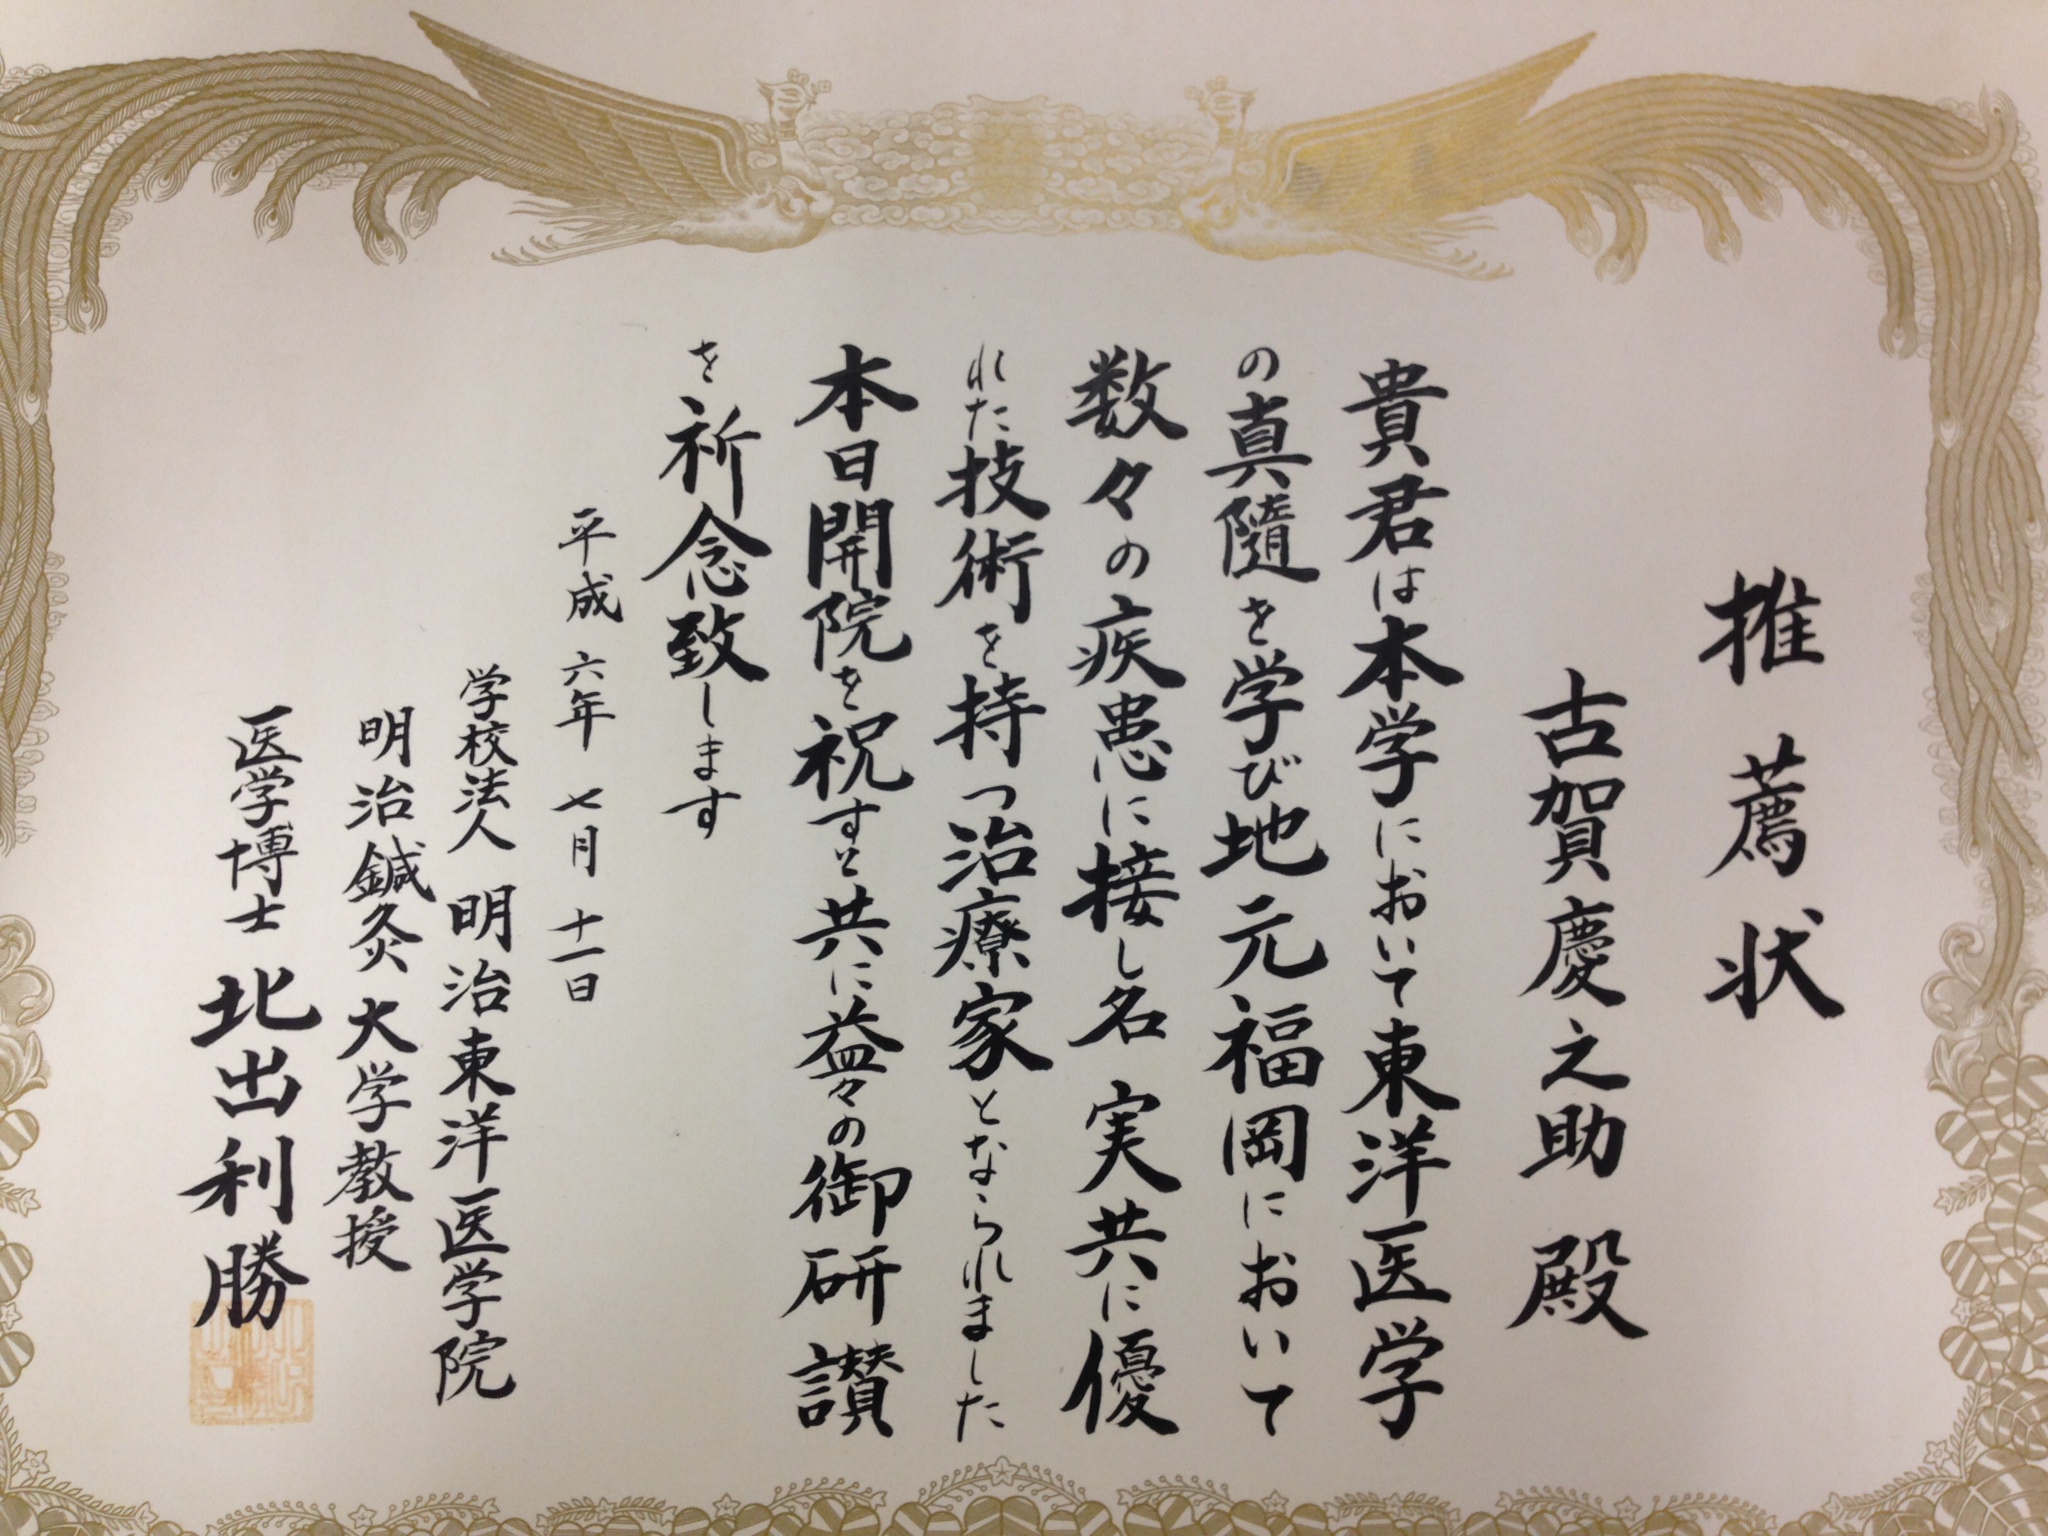 推薦状
古賀慶之助 殿
貴君は本学において東洋医学
の真隨を学び地元福岡において
数々の疾患に接し名実共に優
れた技術を持つ治療家となられました
本日開院を祝すと共に益々の御研讃
を祈念致します
平成六年七月十一日
学校法人 明治東洋医学院
明治鍼灸大学教授
医学博士 北出利勝